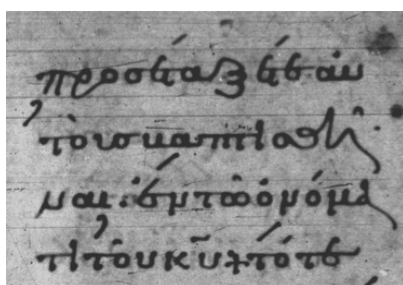 προσέταξέ τε αὐ
τοῖς βαπτισθῆ
ναι· ἐν τῶ ὀνόμα
τι τοῦ κ̅υ̅· τότε